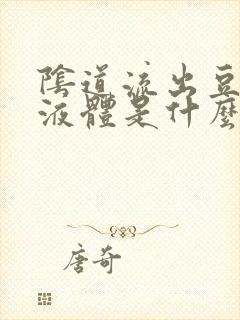 陰道流出豆
液體是什麼
唐奇